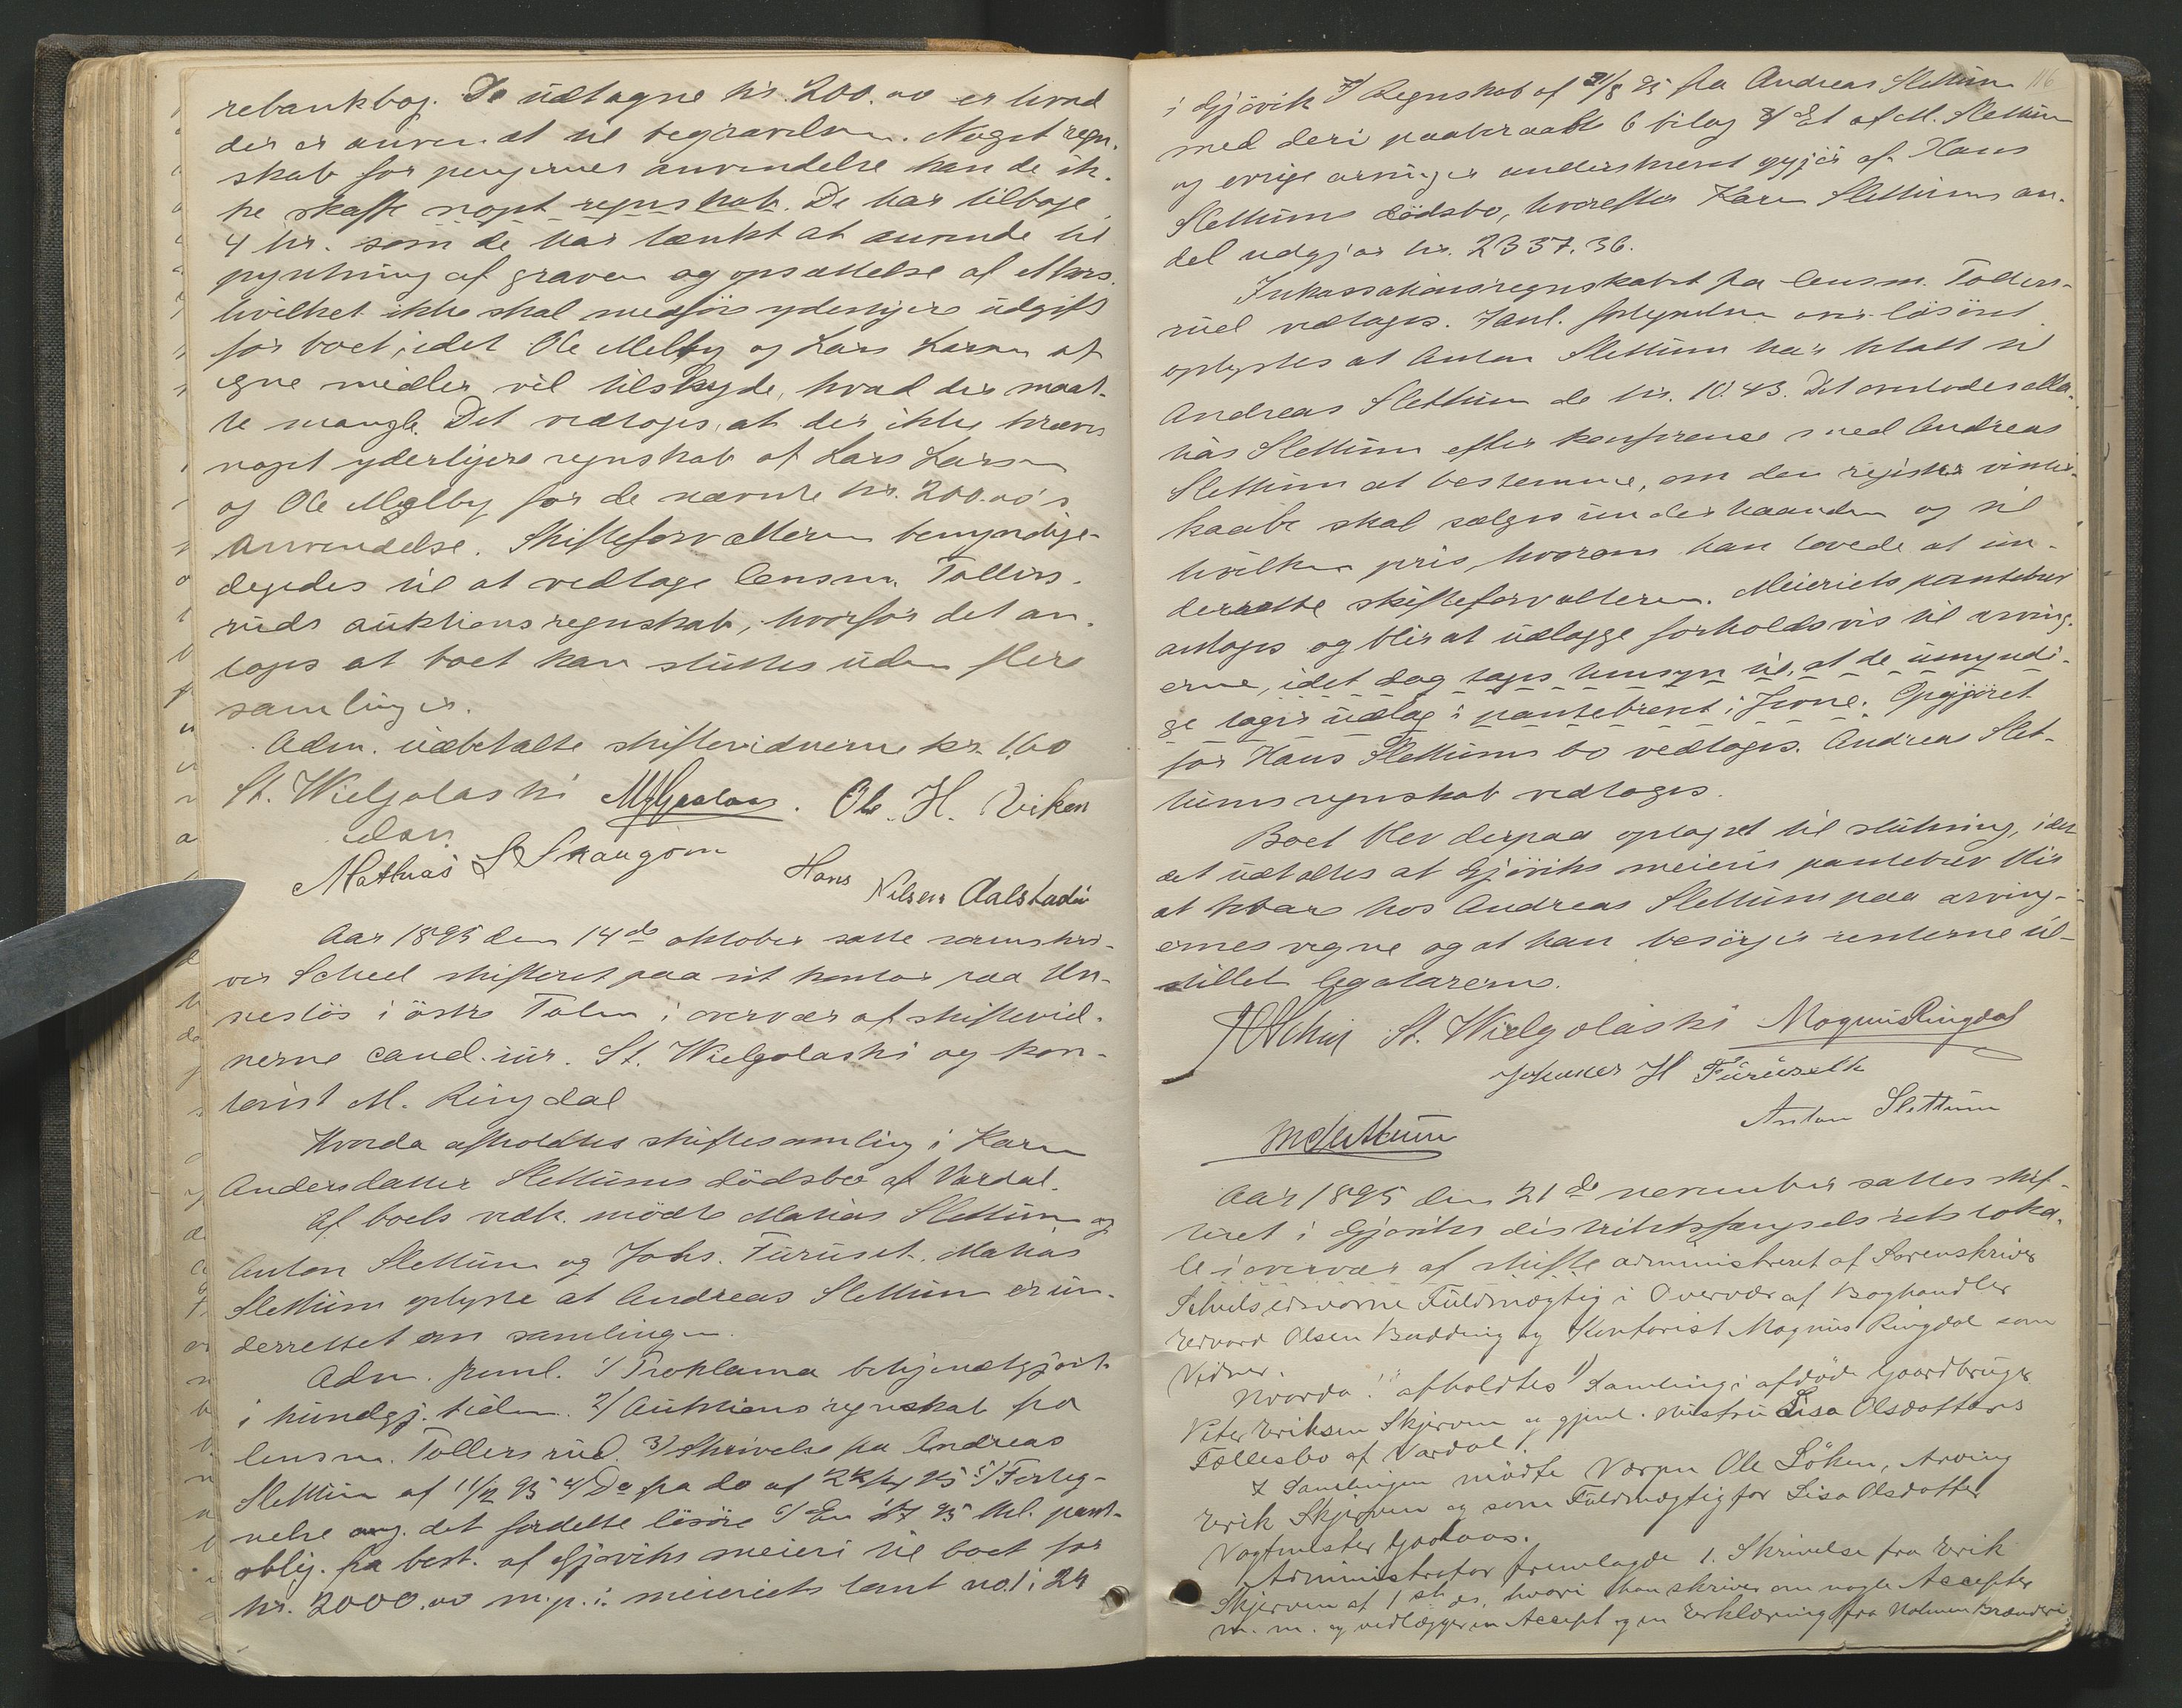 rebankbog. De udtagne kr. 200.00 er hvad
der er anvendt til begravelsen. Noget regn-
skab for pengernes anvendelse kan de ik-
ke skaffe noget regnskab. De har tilbage
4 kr. som de har tænkt at anvende til
pyntning af graven og opsættelse af
hvilket ikke skal medføre yderligere udgift
for boet, idet Ole Melby og Lars Larsen af
egne midler vil tilskyde, hvad der maat-
te mangle. Det vedtoges, at der ikke kræves
noget yderligere regnskab af Lars Larsen
og Ole Melby for de nævnte kr. 200.00's
Anvendelse. Skifteforvalteren bemyndige-
degedes til at vedtage lensm. Tollers-
ruds auktionsregnskab, hvorfor det an-
toges at boet kan sluttes uden flere
samlinger.
Adm. udbetalte skiftevidnerne kr. 1.60
St. Wielgolaski MGaalaas. Ole. H. Viken
Mathias L Skaugom
Hans Nilsen Aalstadie
Aar 1895 den 14de oktober satte sorenskri-
ver Scheel skifteret paa sit kontor paa Un-
neslös i östre Toten i overvær af skiftevid-
nerne cand. jur. St. Wielgolaski og kon-
torist M. Ringdal
Hvorda afholdtes skiftesamling i Karen
Andersdatter Slettums dödsbo af Vardal.
Af boets vedk. mödte Mathias Slettum og
Anton Slettum og Johs. Furuset. Mathias
Slettum oplyste at Andreas Slettum er un-
derrettet om samlingen.
Adm. freml. 1/ Proklama bekjendtgjort
i kundgj. tiden. 2/ Auktionsregnskab fra
lensm. Tollersrud. 3/ Skrivelse fra Andreas
Slettum af 95 4/ Do fra do af 95 5/ Forteg-
nelse ang. det fordelte lösöre 6/ En 95 tkl. pant-
oblig. fra best. af Gjøviks meieri til boet for
kr. 2000.00 m. p. i meieriets tomt no. 1 i 24
116
i Gjövik 7/ Regnskab af 31/8 95 fra Andreas Slettum
med deri paaberaabte 6 bilag 8/ Et af M. Slettum
og övrige arvinger underskrevet opgjör af Hans
Slettums dödsbo, hvorefter Karen Slettums an-
del udgjør kr. 2337.36.
Inkassationsregnskabet fra lensm. Tollers-
rud vedtages. Saml. fortegnelsen over lösöret
oplystes at Anton Slettum har betalt til
Andreas Slettum de kr. 10.43. Det overlodes Mat-
hias Slettum efter konferance med Andreas
Slettum at bestemme, om den register vinter-
kaabe skal sælges underhaanden og til
hvilken pris, hvorom han lovede at un-
derrette skifteforvalteren. Meieriets pantebrev
antoges og blir at udlægge forholdsvis til arving-
erne, idet dog tages hensyn til, at de umyndi-
ge tages udlæg i pantebrevet i Opgjøret
for Hans Slettums bo vedtoges. Andreas Slet-
tums regnskab vedtoges.
Boet blev derpaa optaget til slutning, idet
det udtaltes at Gjöviks meieris pantebrev blir
at bero hos Andreas Slettum paa arving-
ernes vegne og at han besörger renterne til-
stillet legatarerne.
St. Wielgolaski Magnus Ringdal
Johannes H Furuseth
Anton Slettum
M Slettum
Aar 1895 den 21de november sattes skif-
teret i Gjøviks distriktsfængsels retsloka-
le i overvær af skifte administreret af Sorenskriver
Scheels edsvorne Fuldmægtig i Overvær af Boghandler
Edvard Olsen Budding og Kontorist Magnus Ringdal som
Vidner.
Hvorda: afholdtes 1) Samling i afdøde Gaardbruger
Peter Eriksen Skjerven og gjenl. Hustru Lisa Olsdatters
Fællesbo af Vardal.
I Samlingen mödte Værgen Ole Löken, Arving
Erik Skjerven og som Fuldmægtig for Lisa Olsdatter
Vagtmester Gaalaas.
Administrator fremlagde 1. Skrivelse fra Erik
Skjerven af 1 ds., hvori han skriver om nogle Accepter
m. m. og vedlægger en Accept og en Erklæring fra Holmen Brænderi